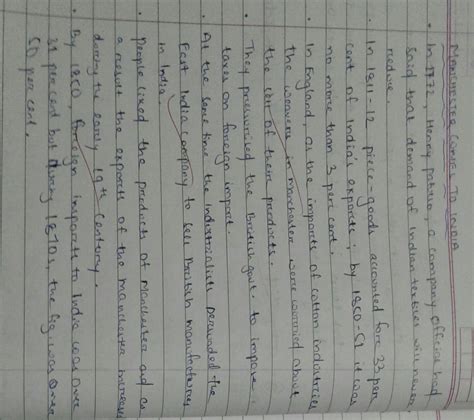 MANCHESTER COMES TO INDIA
• In 1772, Henry Patullo, a company official had
said that demand of Indian textiles will never
reduce.
• In 1811-12 piece-goods accounted for 33 per
cent of India's exports; by 1850-51 it was
no more than 3 per cent.
• In England, as the imports of cotton industries
the weavers in manchester were worried about
the sell of their products.
• They pressurised the British govt. to impose
taxes on foreign import.
• At the same time the Industrialists persuaded the
East India Company to sell British manufactures
in India.
• People liked the products of Manchester and as
a result the exports of the manchester increase
during the early 19th century.
• By 1850 foreign imports to India was over
31 per cent but during 1870s, the fig was over
50 per cent.